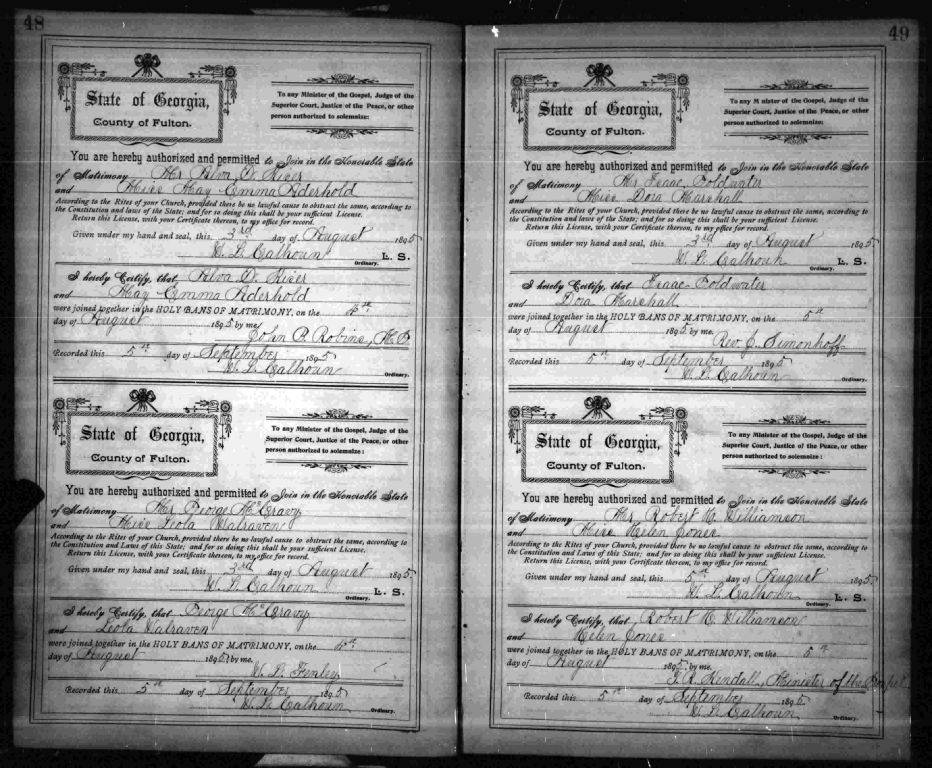 48
State of Georgia,
County of Fulton.
To any Minister of the Gospel, Judge of the
Superior Court, Justice of the Peace, or other
person authorized to solemnize:
You are hereby authorized and permitted to Join in the Honorable State
of Matrimony Mr Silva D. Rices
and Miss May Emma Aderhold
According to the Rites of your Church, provided there be no lawful cause to obstruct the same, according to
the Constitution and laws of the State; and for so doing this shall be your sufficient License.
Return this License, with your Certificate thereon, to my office for record.
Given under my hand and seal, this 3rd day of August 1895
W. L. Calhoun L. S.
Ordinary.
I hereby Certify, that Silva D. Rices
and May Emma Aderhold
were joined together in the HOLY BANS OF MATRIMONY, on the
day of August 1895 by me
John P. Robins,
Recorded this 5th day of September 1895
W. L. Calhoun
Ordinary.
State of Georgia,
County of Fulton.
To any Minister of the Gospel, Judge of the
Superior Court, Justice of the Peace, or other
person authorized to solemnize:
You are hereby authorized and permitted to Join in the Honorable State
of Matrimony Mr George McCravy
and Miss Leola Walraven
According to the Rites of your Church, provided there be no lawful cause to obstruct the same, according to
the Constitution and Laws of this State; and for so doing this shall be your sufficient License.
Return this License, with your Certificate thereon, to my office for record.
Given under my hand and seal, this 3rd day of August 1895
W. L. Calhoun L. S.
Ordinary.
I hereby Certify, that George McCravy
and Leola Walraven
were joined together in the HOLY BANS OF MATRIMONY, on the
day of August 1895 by me.
W. L. Finley
Recorded this 5th day of September 1895
W. L. Calhoun
Ordinary.
49
State of Georgia,
County of Fulton.
To any Minister of the Gospel, Judge of the
Superior Court, Justice of the Peace, or other
person authorized to solemnize:
You are hereby authorized and permitted to Join in the Honorable State
of Matrimony Mr Isaac Coldwater
and Miss Dora Marshall
According to the Rites of your Church, provided there be no lawful cause to obstruct the same, according to
the Constitution and laws of the State; and for so doing this shall be your sufficient License.
Return this License, with your Certificate thereon, to my office for record.
Given under my hand and seal, this 3rd day of August 1895
W. L. Calhoun L. S.
Ordinary.
I hereby Certify, that Isaac Coldwater
and Dora Marshall
were joined together in the HOLY BANS OF MATRIMONY, on the 5th
day of August 1895 by me.
Rev J. Simonhoff
Recorded this 5th day of September 1895
W. L. Calhoun
Ordinary.
State of Georgia,
County of Fulton.
To any Minister of the Gospel, Judge of the
Superior Court, Justice of the Peace, or other
person authorized to solemnize:
You are hereby authorized and permitted to Join in the Honorable State
of Matrimony Mr Robert H. Williamson
and Miss Helen Jones
According to the Rites of your Church, provided there be no lawful cause to obstruct the same, according to
the Constitution and Laws of this State; and for so doing this shall be your sufficient License.
Return this License, with your Certificate thereon, to my office for record.
Given under my hand and seal, this 5th day of August 1895
W. L. Calhoun L. S.
Ordinary.
I hereby Certify, that Robert H. Williamson
and Helen Jones
were joined together in the HOLY BANS OF MATRIMONY, on the 5th
day of August 1895 by me.
T. R. Kendall, Minister of the Gospel
Recorded this 5th day of September 1895
W. L. Calhoun
Ordinary.